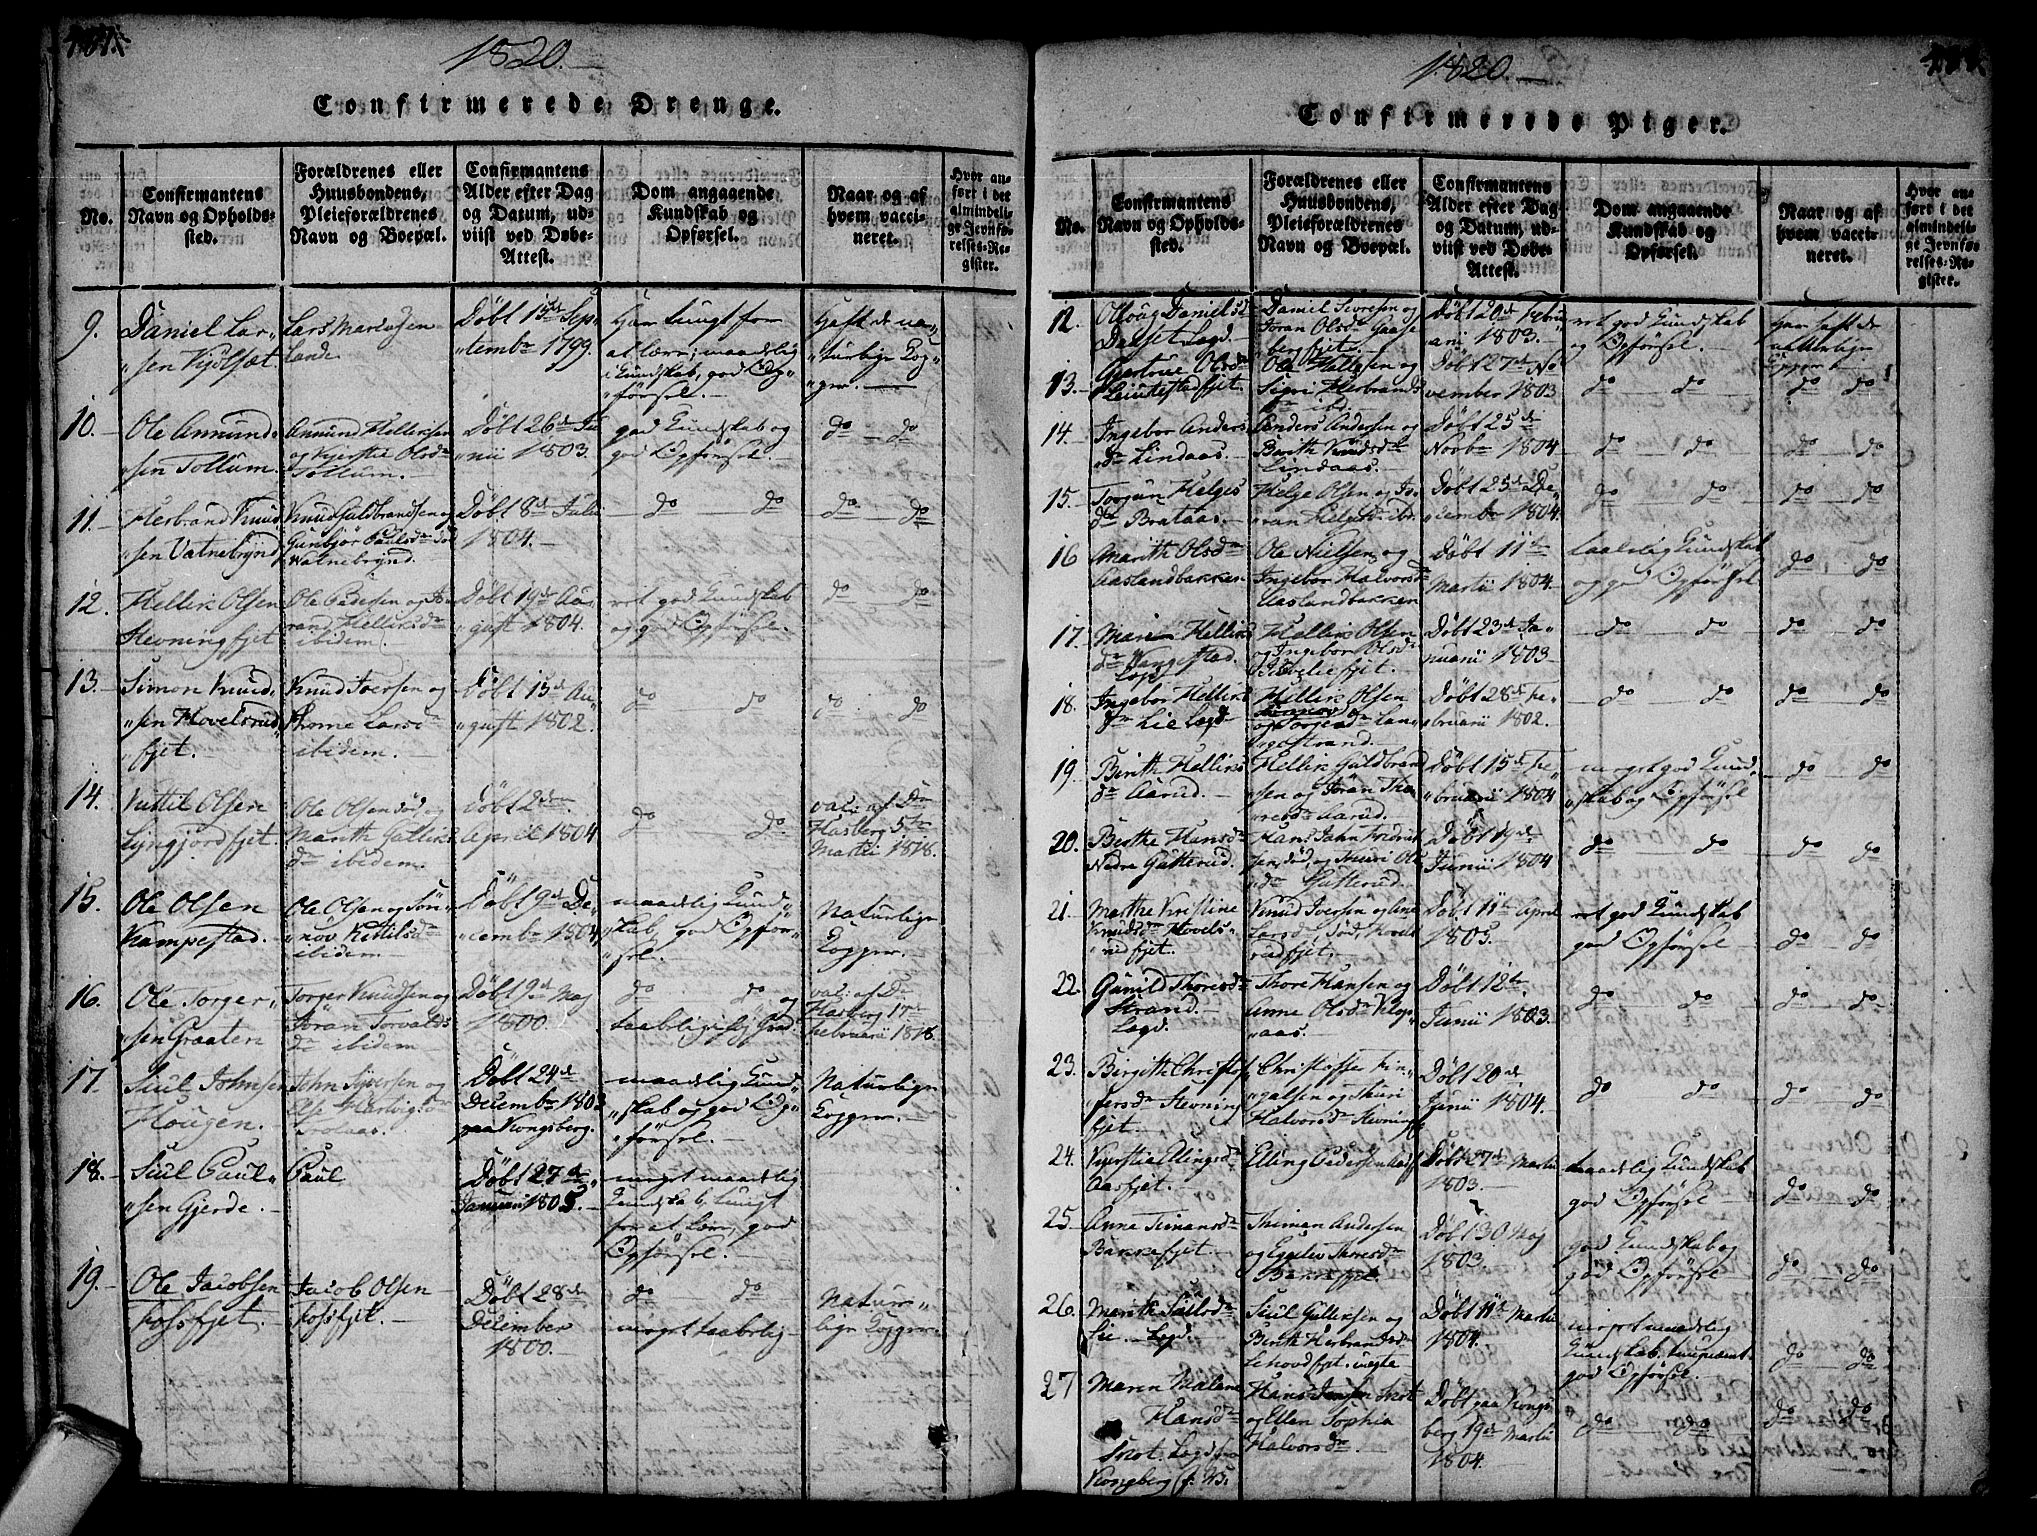 1820.
Confirmerede Drenge.
No.
Confirmantens
Navn og Opholds-
sted.
Forældrenes eller
Huusbondens,
Pleieforældrenes
Navn og Boepæl.
Confirmantens
Alder efter Dag
og Datum, ud-
viist ved Døbe-
Attest.
Dom angaaende
Kundskab og
Opførsel.
Naar og af
hvem vacci-
neret.
Hvor an-
ført i det
almindeli-
ge Jevnfø-
relses-Re-
gister.
9.
Daniel Lar-
"sen
Lars
Lande
Døbt 15de Sep-
"temb 1799.
Har tungt for
at lære; maadelig
Kundskab, god Op-
"førsel.
Haft de na-
"turlige Kop-
"per.
10.
Ole Amund-
"sen Tollum.
Amund Helliksen
og Kjerstie Olsdr
Tollum.
Døbt 26de Ju-
"nii 1803.
god Kundskab og
god Opførsel.
do do
11.
Herbrand Knud-
"sen Vatnebrynd
Knud Guldbrandsen og
Gunbjør Paulsdr
Vatnebrynd.
Døbt 8de Julii
1804.
do do
do do
12.
Hellik Olsen
Stevningfjet.
Ole Pedersen og Jo-
rand Helliksdr
ibidem.
Døbt 19de Au-
"gust 1804.
ret god Kundskab
og god Opførsel.
do do
13.
Simon Knud-
"sen Hovelsrud
fjet.
Knud Iversen og
Larsdr
ibidem.
Døbt 15de Au-
"gust 1802.
do do
do do
14.
Kittil Olsen
Lyngjordfjet.
Ole Olsen død
Marith Gulliks
dr ibidem.
Døbt 2den
April 1804
do do
vac: af Dr
Hasberg 5te
Martii 1818.
15.
Ole Olsen
Kampestad.
Ole Olsen og Søn-
"nov Kittilsdr
ibidem
Døbt 9de De-
"cembr 1804
maadelig Kund-
"skab, god Opfør-
"sel.
Naturlige
Kopper.
16.
Ole Torger-
"sen Graaten
Torger Knudsen og
Jöran Torvalds
dr ibidem
Døbt 9de Maj
1800.
do do og
vac: af Dr
Hasberg 17de
Februarii 1818.
17.
Siul Johnsen
Hougen.
John Syversen og
Døbt 24de
Decembr 1803
paa Kongsberg.
maadelig Kund-
"skab og god Op-
"førsel.
Naturlige
Kopper.
18.
Siul Paul-
"sen Gjerde.
Paul
Døbt 27de
Januarii 1805.
meget maadelig
Kundskab, tungt
for at lære, god
Opførsel.
19.
Ole Jacobsen
Fossfjet.
Jacob Olsen
Fossfjet.
Døbt 28de
December
1800.
do do
meget taabelig
Natur-
lige Kopper.
1820.
Confirmerede Piger.
No.
Confirmantens
Navn og Opholds-
sted.
Forældrenes eller
Huusbondens,
Pleieforældrenes
Navn og Boepæl.
Confirmantens
Alder efter Dag
og Datum, ud-
viist ved Døbe-
Attest.
Dom angaaende
Kundskab og
Opførsel.
Naar og af
hvem vacci-
neret.
Hvor an-
ført i det
almindeli-
ge Jevnfø-
relses-Re-
gister.
12.
Danielsd
Legd.
Daniel Seversen og
Joran Olsdr
Døbt 20de Febru-
arii 1803.
ret god Kundskab
og Opførsel.
har haft de
naturlige
Kopper
13.
Olsdr
Ole Hellesen og
Sigri Herbrands
dr ibd.
Døbt 27de No-
vember 1803
do do
do do
14.
Ingebor Anders
dr Lindaas.
Anders Andersen og
Birith Knudsdr
Lindaas.
Døbt 25de
Novbr 1804
do do
do do
15.
Torgun Helges
dr Brataas.
Helge Olsen og Jo-
ran Helgesdr ibd.
Døbt 25de De-
cembr 1804.
do do
do do
16
Marith Olsdr
Aaslandbakken
Ole Nielsen og
Ingebor Halvorsdr
Aaslandbakken
Døbt 11te
Martii 1804.
taalelig Kundskab
og god Opførsel
do do
17.
Maren Helliks
dr Vangestad.
Legd
Hellik Olsen
og Ingebor Olsdr
Døbt 23de Ja-
nuarii 1803
do do
do do
18.
Ingebor Helliks
dr Lie Legd
Hellik Olsen
Døbt 28de Fe-
bruarii 1802.
do do
do do
19.
Birith Helliks
dr Aarud.
Hellik Guldbrand
"sen og Jöran Tho-
resdr Aarud.
Døbt 15de Fe-
"bruarii 1804
meget god Kund-
"skab og Opførsel
do do
20.
Berthe Hansdr
Nedre Gutterud.
Hans Jahn Fredrik
sen død, og Thuri Ols
dr Gutterud.
Døbt 19de
Junii 1804
do do
do do
21.
Marthe Kristine
Knudsdr Hovels-
"rudfjet.
Knud Iversen og Ane
Larsdr død, Hovels
rudfjet.
Døbt 11te April
1805.
ret god Kundskab
god Opførsel
do do
22.
Gunild Thoresdr
Strand.
Legd.
Thore Hansen og
Anne Olsdr Klop-
"aas.
Døbt 12te
Junii 1803.
do do
do do
23.
Birgith Christof-
"fersdr Stevning
fjet.
Christoffer Fin-
"galsen og Thuri
Halvorsdr Stevningfj
Døbt 20de
Junii 1804.
do do
do do
24.
Kjerstie Ellingsdr
Aasfjet.
Elling Pedersen
Døbt 27de Martii
1803.
maadelig Kundskab
god Opførsel
do do
25.
Anna Timansdr
Bakkefjet.
Thiman Andersen
og Eggelev
Bakkefjet.
Døbt 30 Maj
1803.
god Kundskab og
god Opførsel
do do
26.
Marith Siulsdr
Lie. Legd.
Siul Gulliksen og
Birith Herbrandsdr
Lehovdfjet
Døbt 11te Martii
1804.
meget maadelig
Kundskab,
god Opførsel.
do do
27
Maren Malene
Hansdr
Skot. Legd
Kongsberg
Hans Jensen Skot
og Ellen Sophia
Halvorsdr
Døbt paa Kongs-
berg 19de Martii
1804.
do do
do do